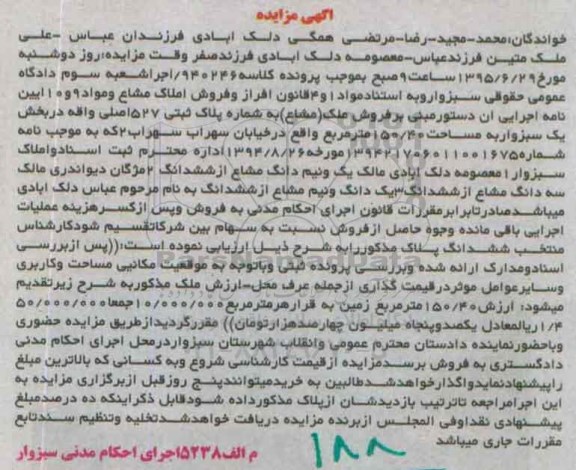 آگهی مزایده
خواندگان:محمد-مجید-رضا-مرتضی همگی دلک ابادی فرزندان عباس -علی
ملک متین فرزندعباس-معصومه دلک ابادی فرزندصفر وقت مزایده:روز دوشنبه
مورخ۱۳۹۵/۶/۲۹ساعت۹صبح بموجب پرونده کلاسه۹۴۰۲۴۶/اجراشعبه سوم دادگاه
عمومی حقوقی سبزواروبه استنادمواد۱و۴قانون افراز وفروش املاک مشاع ومواد۹و۱۰ایین
نامه اجرایی ان دستورمبنی برفروش ملک(مشاع)به شماره پلاک ثبتی ۵۲۷اصلی واقه دربخش
یک سبزواربه مساحت۱۵۰/۴۰مترمربع واقع درخیابان سهراب سهراب۲که به موجب نامه
شماره۱۳۹۴۲۱۷۰۶۰۱۱۰۰۱۶۷۵مورخه۱۳۹۴/۸/۲۶اداره محترم ثبت اسنادواملاک
سبزوار۱معصومه دلک آبادی مالک یک ونیم دانگ مشاع ازششدانگ ۲مژگان دیواندری مالک
سه دانگ مشاع ازششدانگ۳یک دانگ ونیم مشاع ازششدانگ به نام مرحوم عباس دلک ابادی
میباشدصادرتابرابرمقررات قانون اجرای احکام مدنی به فروش وپس ازکسرهزینه عملیات
اجرایی باقی مانده وجوه حاصل ازفروش نسبت به سهام بین شرکاتقسیم شودکارشناس
منتخب ششدانگ پلاک مذکوررابه شرح ذیل ارزیابی نموده است:((پس ازبررسی
اسنادومدارک ارائه شده وبررسی پرونده ثبتی وباتوجه به موقعیت مکانیی مساحت وکاربری
وسایرعوامل موثردرقیمت گذاری ازجمله عرف محل-ارزش ملک مذکوربه شرح زیرتقدیم
میشود: ارزش۱۵۰/۴۰مترمربع زمین به قرارهرمترمربع۱۰/۰۰۰/۰۰۰جمعا۵۰/۰۰۰/۰۰۰
۱/۴ریالمعادل یکصدوپنجاه میلیون چهارصدهزارتومان)) مقررگردیدازطریق مزایده حضوری
وباحضورنماینده دادستان محترم عمومی وانقلاب شهرستان سبزواردرمحل اجرای احکام مدنی
دادگستری به فروش برسدمزایده ازقیمت کارشناسی شروع وبه کسانی که بالاترین مبلغ
راپیشنهادنمایدواگذارخواهدشدطالبین به خریدمیتوانندپنج روزقبل ازبرگزاری مزایده به
این اجرامراجعه تاترتیب بازدیدشان ازپلاک مذکورداده شودقابل ذکراینکه ده درصدمبلغ
پیشنهادی نقداوفی المجلس ازبرنده مزایده دریافت خواهدشدتخلیه وتنظیم سندتابع
مقررات جاری میباشد
۱۸۸
م الف۵۲۳۸اجرای احکام مدنی سبزوار
ParsNamadData